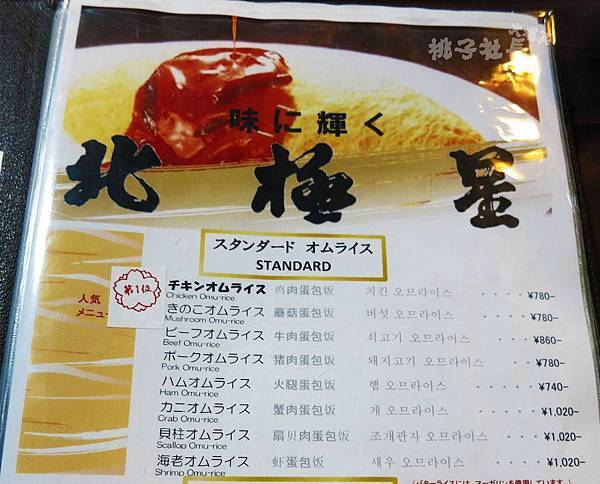 桃子社長
味に輝く
北極星
スタンダード オムライス
STANDARD
人気
メニュー
第1位
チキンオムライス 鸡肉蛋包饭 치킨 오므라이스 ····¥780-
Chicken Omu-rice
きのこオムライス 蘑菇蛋包饭 버섯 오므라이스 ····¥780-
Mushroom Omu-rice
ビーフオムライス 牛肉蛋包饭 쇠고기 오므라이스 ····¥860-
Beef Omu-rice
ポークオムライス 猪肉蛋包饭 돼지고기 오므라이스 ····¥780-
Pork Omu-rice
ハムオムライス 火腿蛋包饭 햄 오므라이스 ····¥740-
Ham Omu-rice
カニオムライス 蟹肉蛋包饭 게 오므라이스 ····¥1,020-
Crab Omu-rice
貝柱オムライス 扇贝肉蛋包饭 조개관자 오므라이스 ····¥1,020-
Scallop Omu-rice
海老オムライス 虾蛋包饭 새우 오므라이스 ····¥1,020-
Shrimp Omu-rice
(バターライスには、マーガリンを使用しています。)